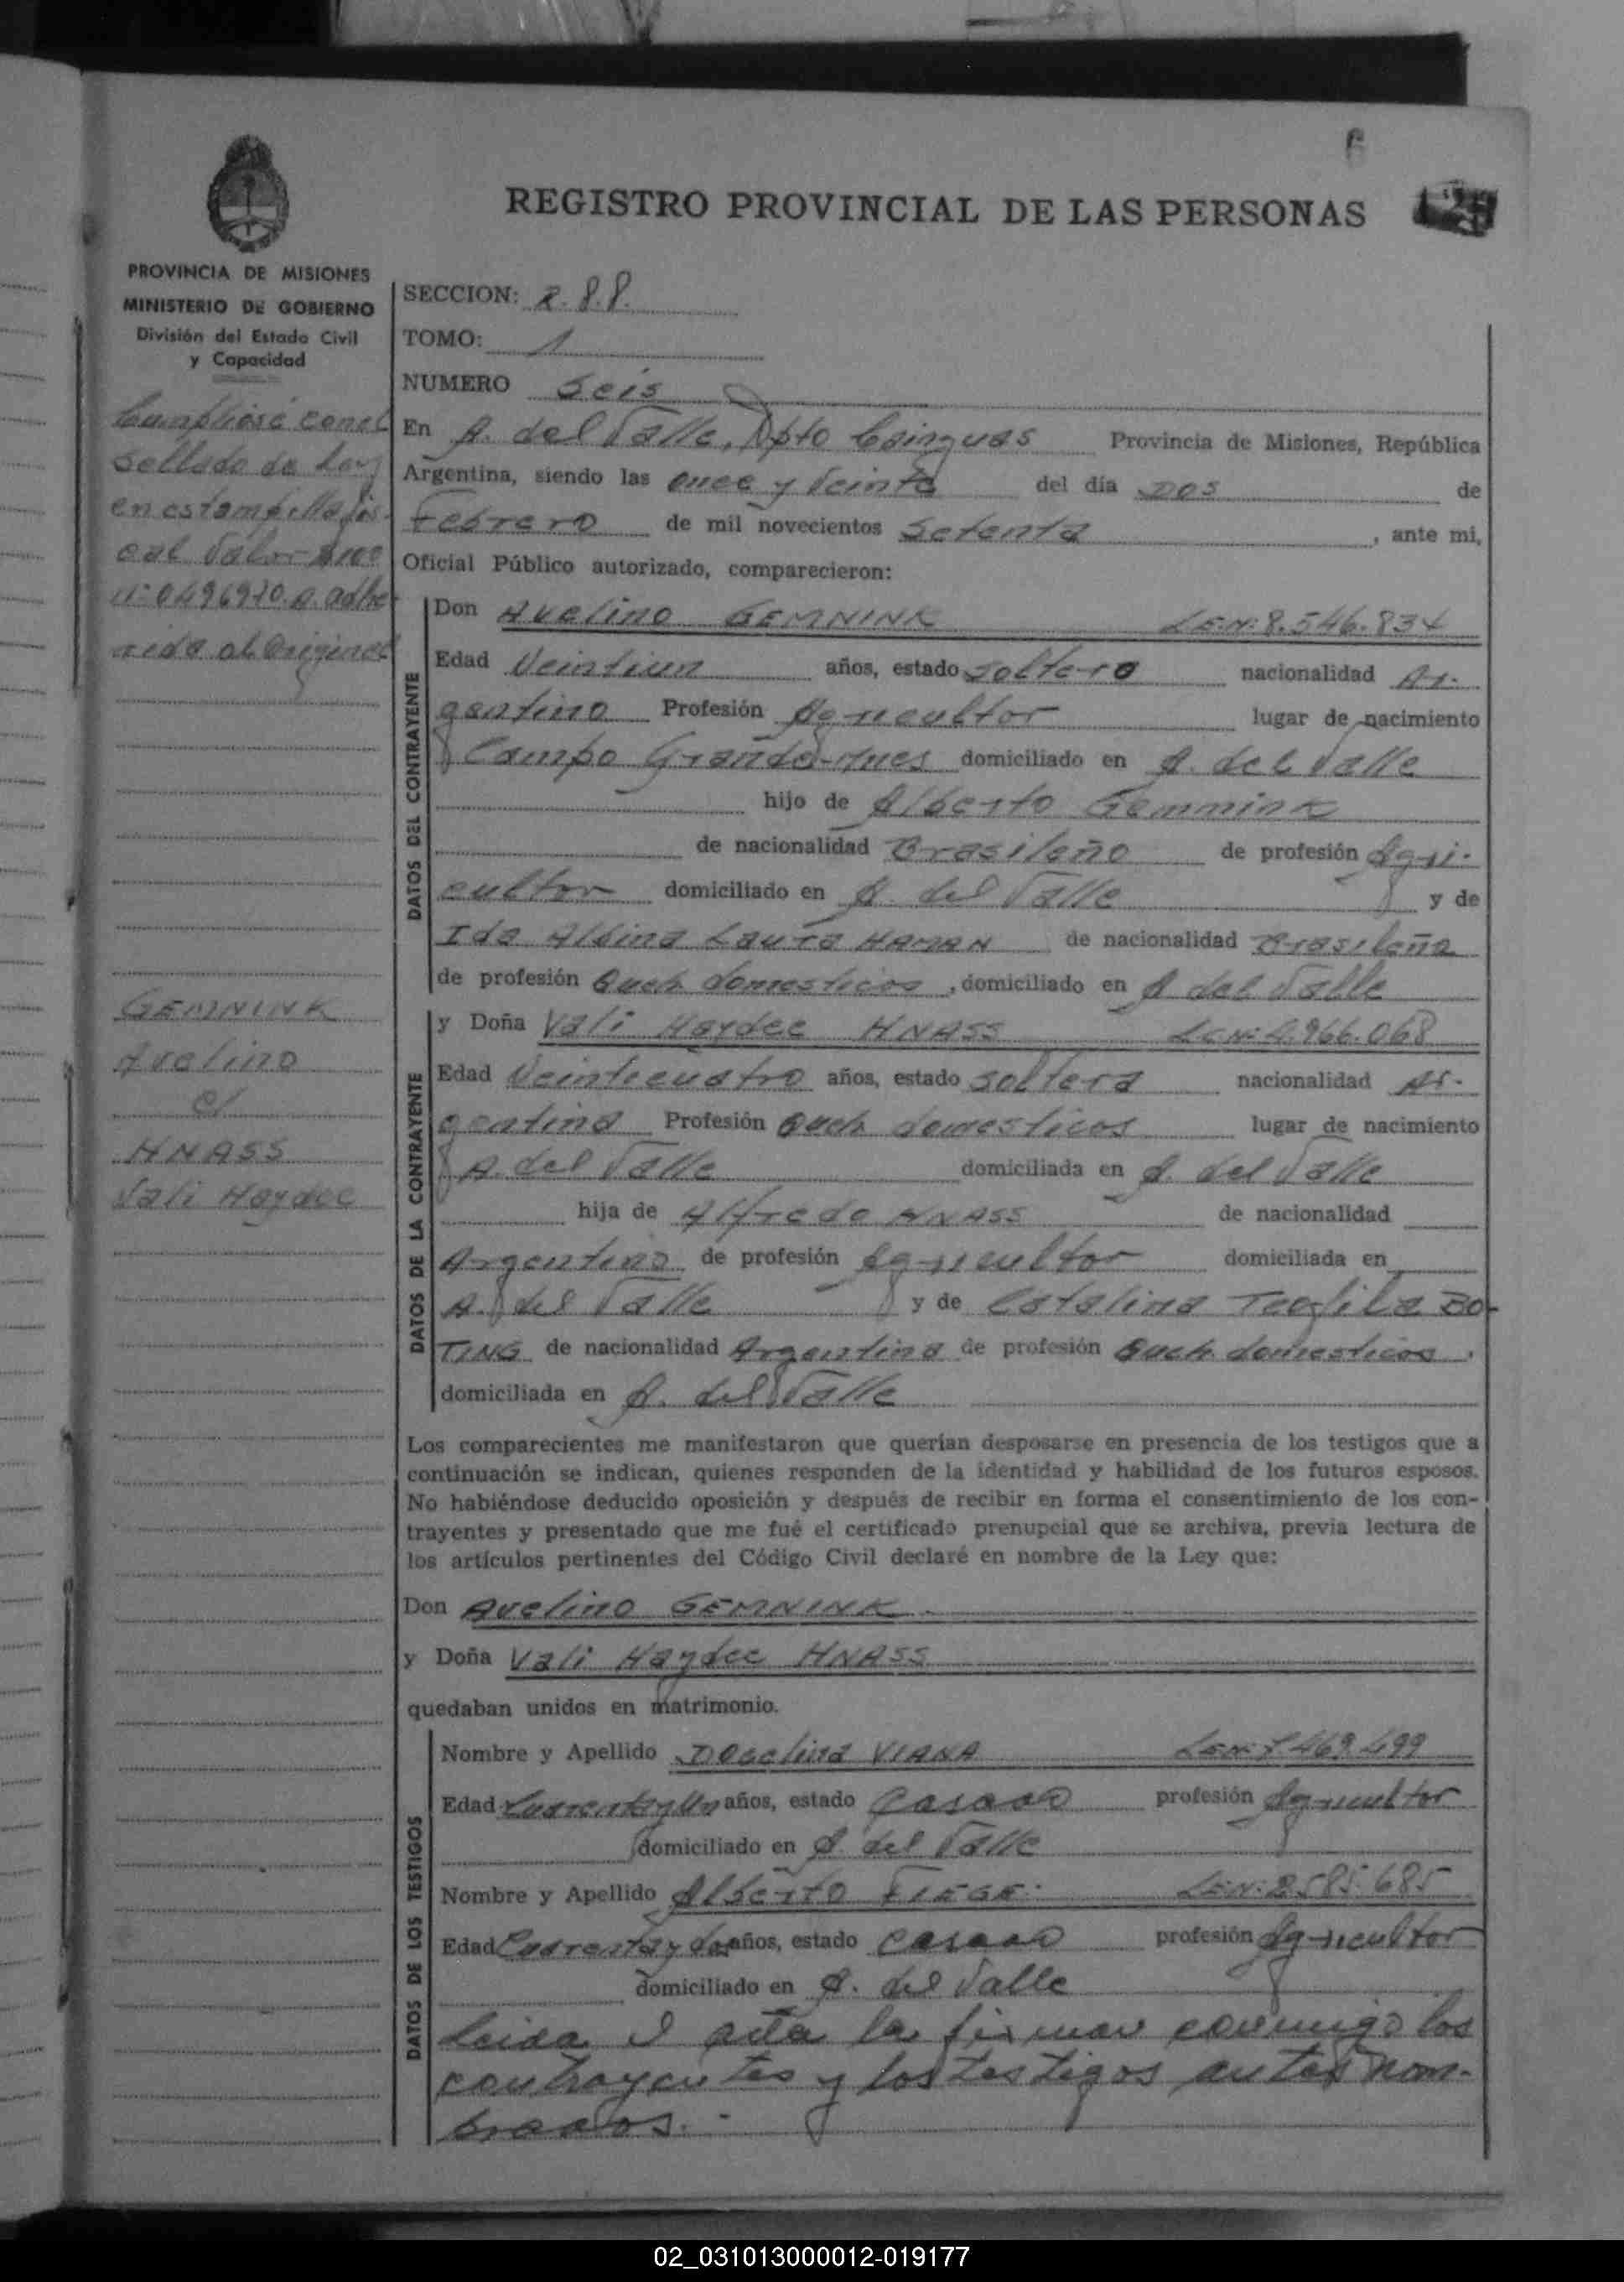 6
REGISTRO PROVINCIAL DE LAS PERSONAS
PROVINCIA DE MISIONES
MINISTERIO DE GOBIERNO
División del Estado Civil
y Capacidad
Cumpliose con el
sellado de Ley
en estampilla fis-
cal valor $100
Nº 0496970. A. adhe-
rida al Original
GEMNINK
Avelino
c/
HNASS
Vali Haydee
SECCION: R. 8.8.
TOMO: 1
NUMERO Seis
En A. del Valle, Dpto Cainguas Provincia de Misiones, República
Argentina, siendo las once y veinte del día DOS de
Febrero de mil novecientos Setenta, ante mi,
Oficial Público autorizado, comparecieron:
DATOS DEL CONTRAYENTE
Don Avelino GEMNINK L.E.Nº 8.546.834
Edad Veintiun años, estado soltero nacionalidad Ar-
gentino Profesión Agricultor lugar de nacimiento
Campo Grande-Mnes domiciliado en A. del Valle
hijo de Alberto Gemnink
de nacionalidad Brasileño de profesión Agri-
cultor domiciliado en A. del Valle y de
Ida Albina Laura HAMAN de nacionalidad Brasileña
de profesión Queh. domesticos, domiciliado en A. del Valle
DATOS DE LA CONTRAYENTE
y Doña Vali Haydee HNASS L.C.Nº 4.966.068
Edad Veinticuatro años, estado soltera nacionalidad Ar-
gentina Profesión Queh. domesticos lugar de nacimiento
A. del Valle domiciliada en A. del Valle
hija de Alfredo HNASS de nacionalidad
Argentino de profesión Agricultor domiciliada en
A. del Valle y de Catalina Teofila BO-
TING de nacionalidad Argentina de profesión Queh. domesticos,
domiciliada en A. del Valle
Los comparecientes me manifestaron que querían desposarse en presencia de los testigos que a
continuación se indican, quienes responden de la identidad y habilidad de los futuros esposos.
No habiéndose deducido oposición y después de recibir en forma el consentimiento de los con-
trayentes y presentado que me fué el certificado prenupcial que se archiva, previa lectura de
los artículos pertinentes del Código Civil declaré en nombre de la Ley que:
Don Avelino GEMNINK.
y Doña Vali Haydee HNASS
quedaban unidos en matrimonio.
DATOS DE LOS TESTIGOS
Nombre y Apellido VIANA L.E.Nº 7.469.499
Edad Cuarentayun años, estado casado profesión Agricultor
domiciliado en A. del Valle
Nombre y Apellido Alberto FIEGE. L.E.Nº 2.585.685
Edad Cuarentay dos años, estado casado profesión Agricultor
domiciliado en A. del Valle
Leida el acta la firman conmigo los
contrayentes y los testigos antes nom-
brados.-
02_031013000012-019177